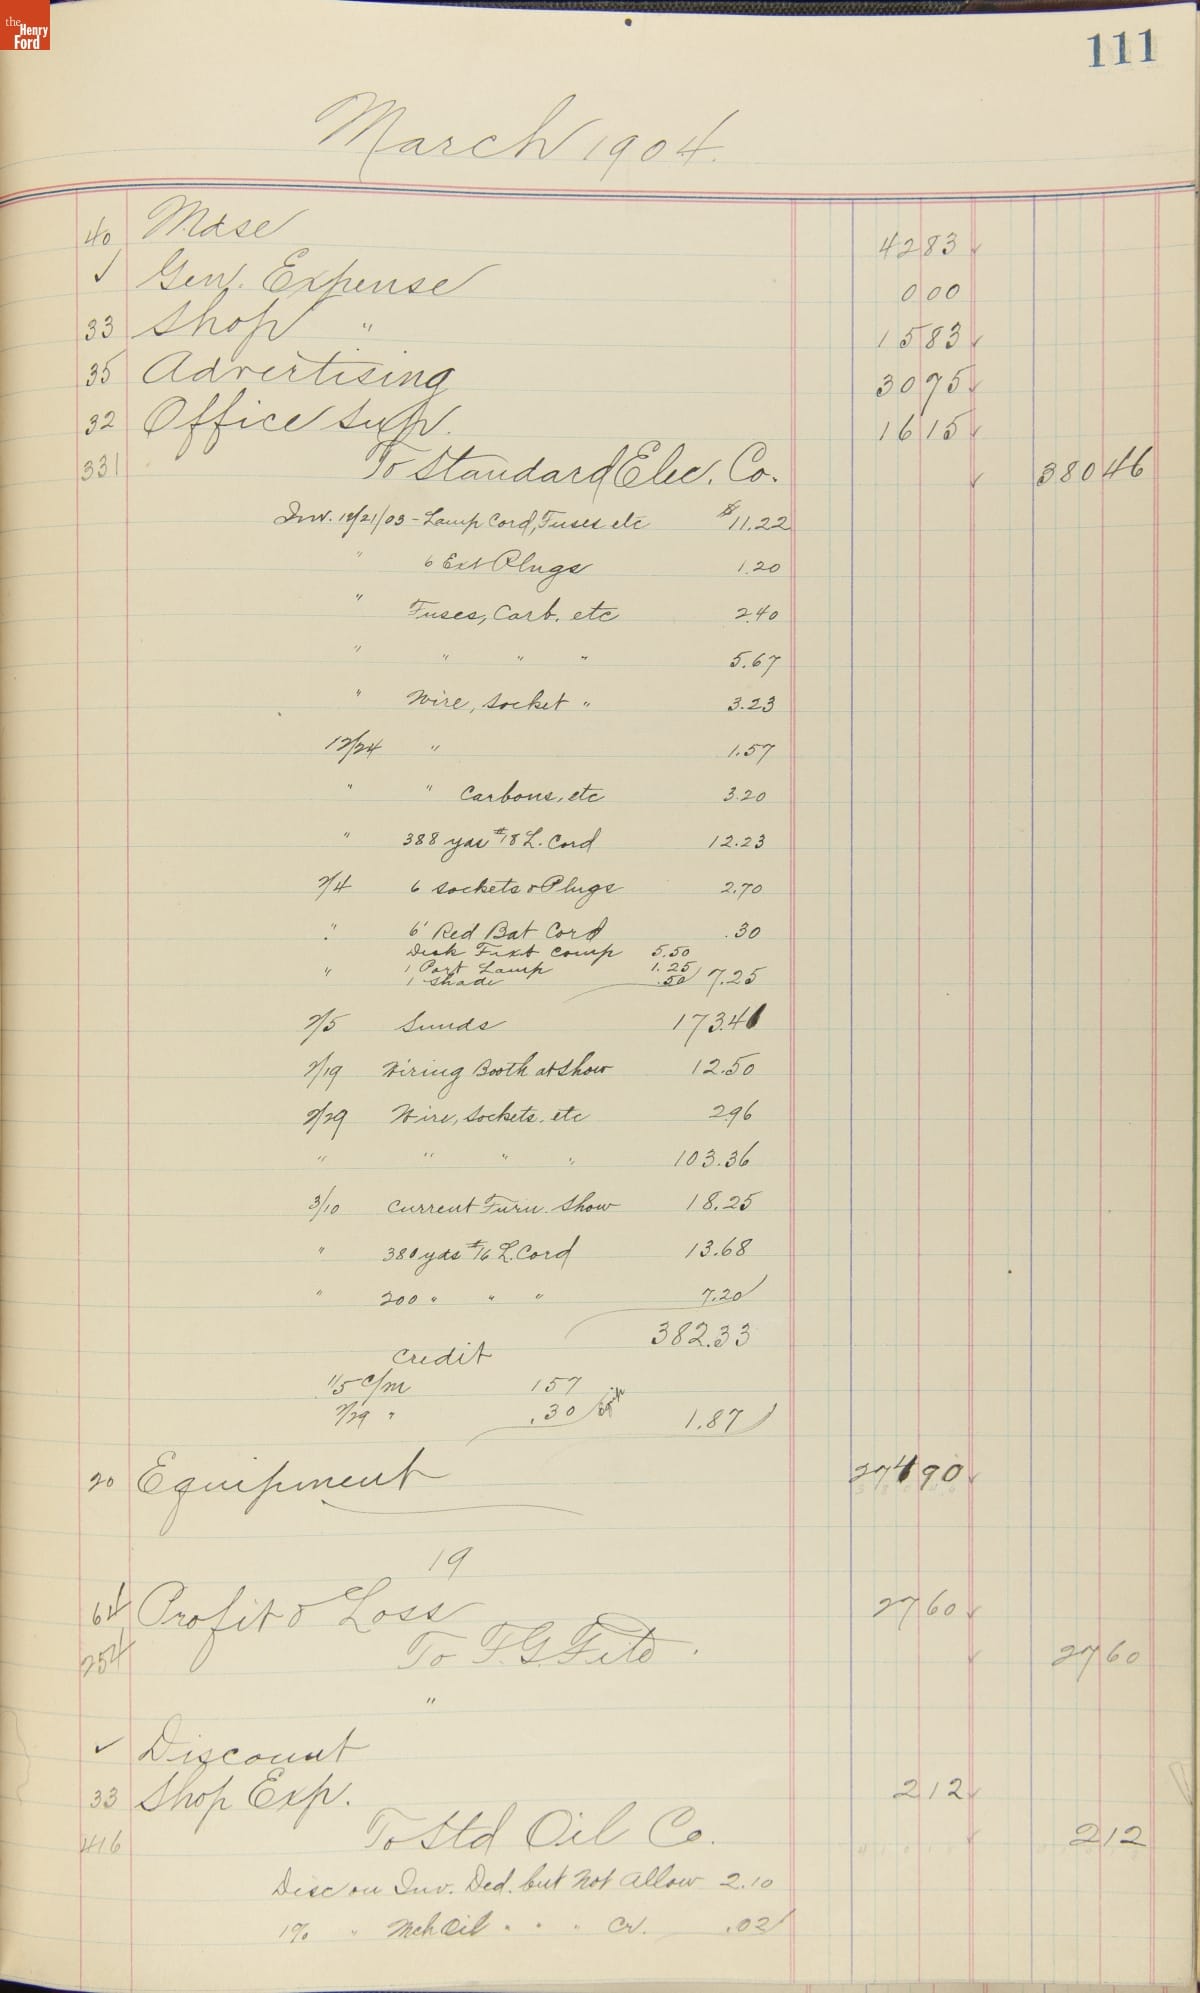 the Henry Ford
111
March 1904.
40 Mdse 42 83 ✓
✓ Gen. Expense 0 00
33 Shop " 15 83 ✓
35 Advertising 30 75 ✓
32 Office Sup. 16 15 ✓
331 To Standard Elec. Co. ✓ 380 46
Inv. 12/21/03 - Lamp Cord, Fuses etc $11.22
" 6 Ext Plugs 1.20
" Fuses, Carb. etc 2.40
" " " " 5.67
" Wire, Socket " 3.23
12/24 " 1.57
" " Carbons, etc 3.20
" 388 yds #18 L. Cord 12.23
2/4 6 Sockets & Plugs 2.70
" 6' Red Bat Cord .30
Desk Fixt comp 5.50
" 1 Port Lamp 1.25
1 Shade .50 7.25
2/5 Sunds 173.41
2/19 Wiring Booth at Show 12.50
2/29 Wire, Sockets, etc 2.96
" " " " 103.36
3/10 Current Furn. Show 18.25
" 380 yds #16 L. Cord 13.68
" 200 " " " 7.20
382.33
Credit
1/5 C/M 1 57
2/29 " .30 1.87
20 Equipment 274 90 ✓
19
64 Profit & Loss 27 60 ✓
254 To F.G. ✓ 27 60
"
✓ Discount
33 Shop Exp. 2 12 ✓
416 To Std Oil Co. ✓ 2 12
Disc on Inv. Ded. but Not Allow 2.10
1% " Mch Oil " " " Cr. .02